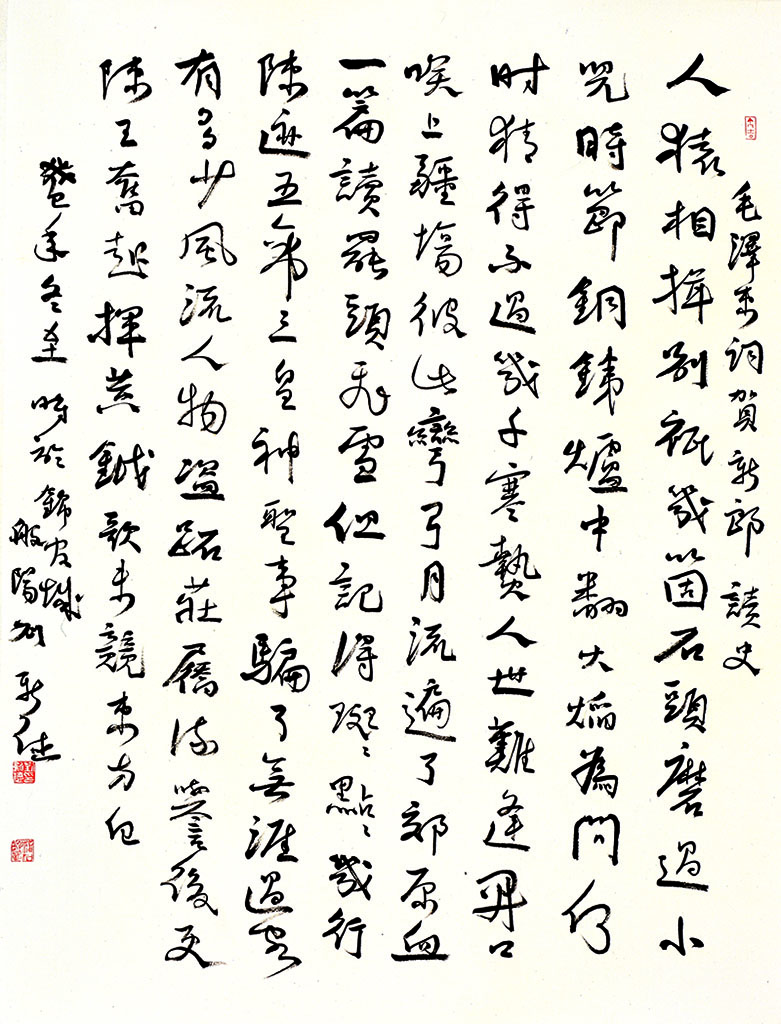 毛澤東詞賀新郎 讀史
人猿相揖别衹幾箇石頭磨過小
兒時節銅鐵爐中翻火焰為問何
时猜得不過幾千寒熱人世難逢開口
咲上疆塲彼此彎弓月流遍了郊原血
一篇讀罷頭飛雪但記得斑〻點〻幾行
陳迹五帝三皇神聖事騙了無涯過客
有多少風流人物盜跖莊屩流譽後更
陳王奮起揮黄鉞歌未競東方白
癸巳年冬至時於錦官城
般陽劉新